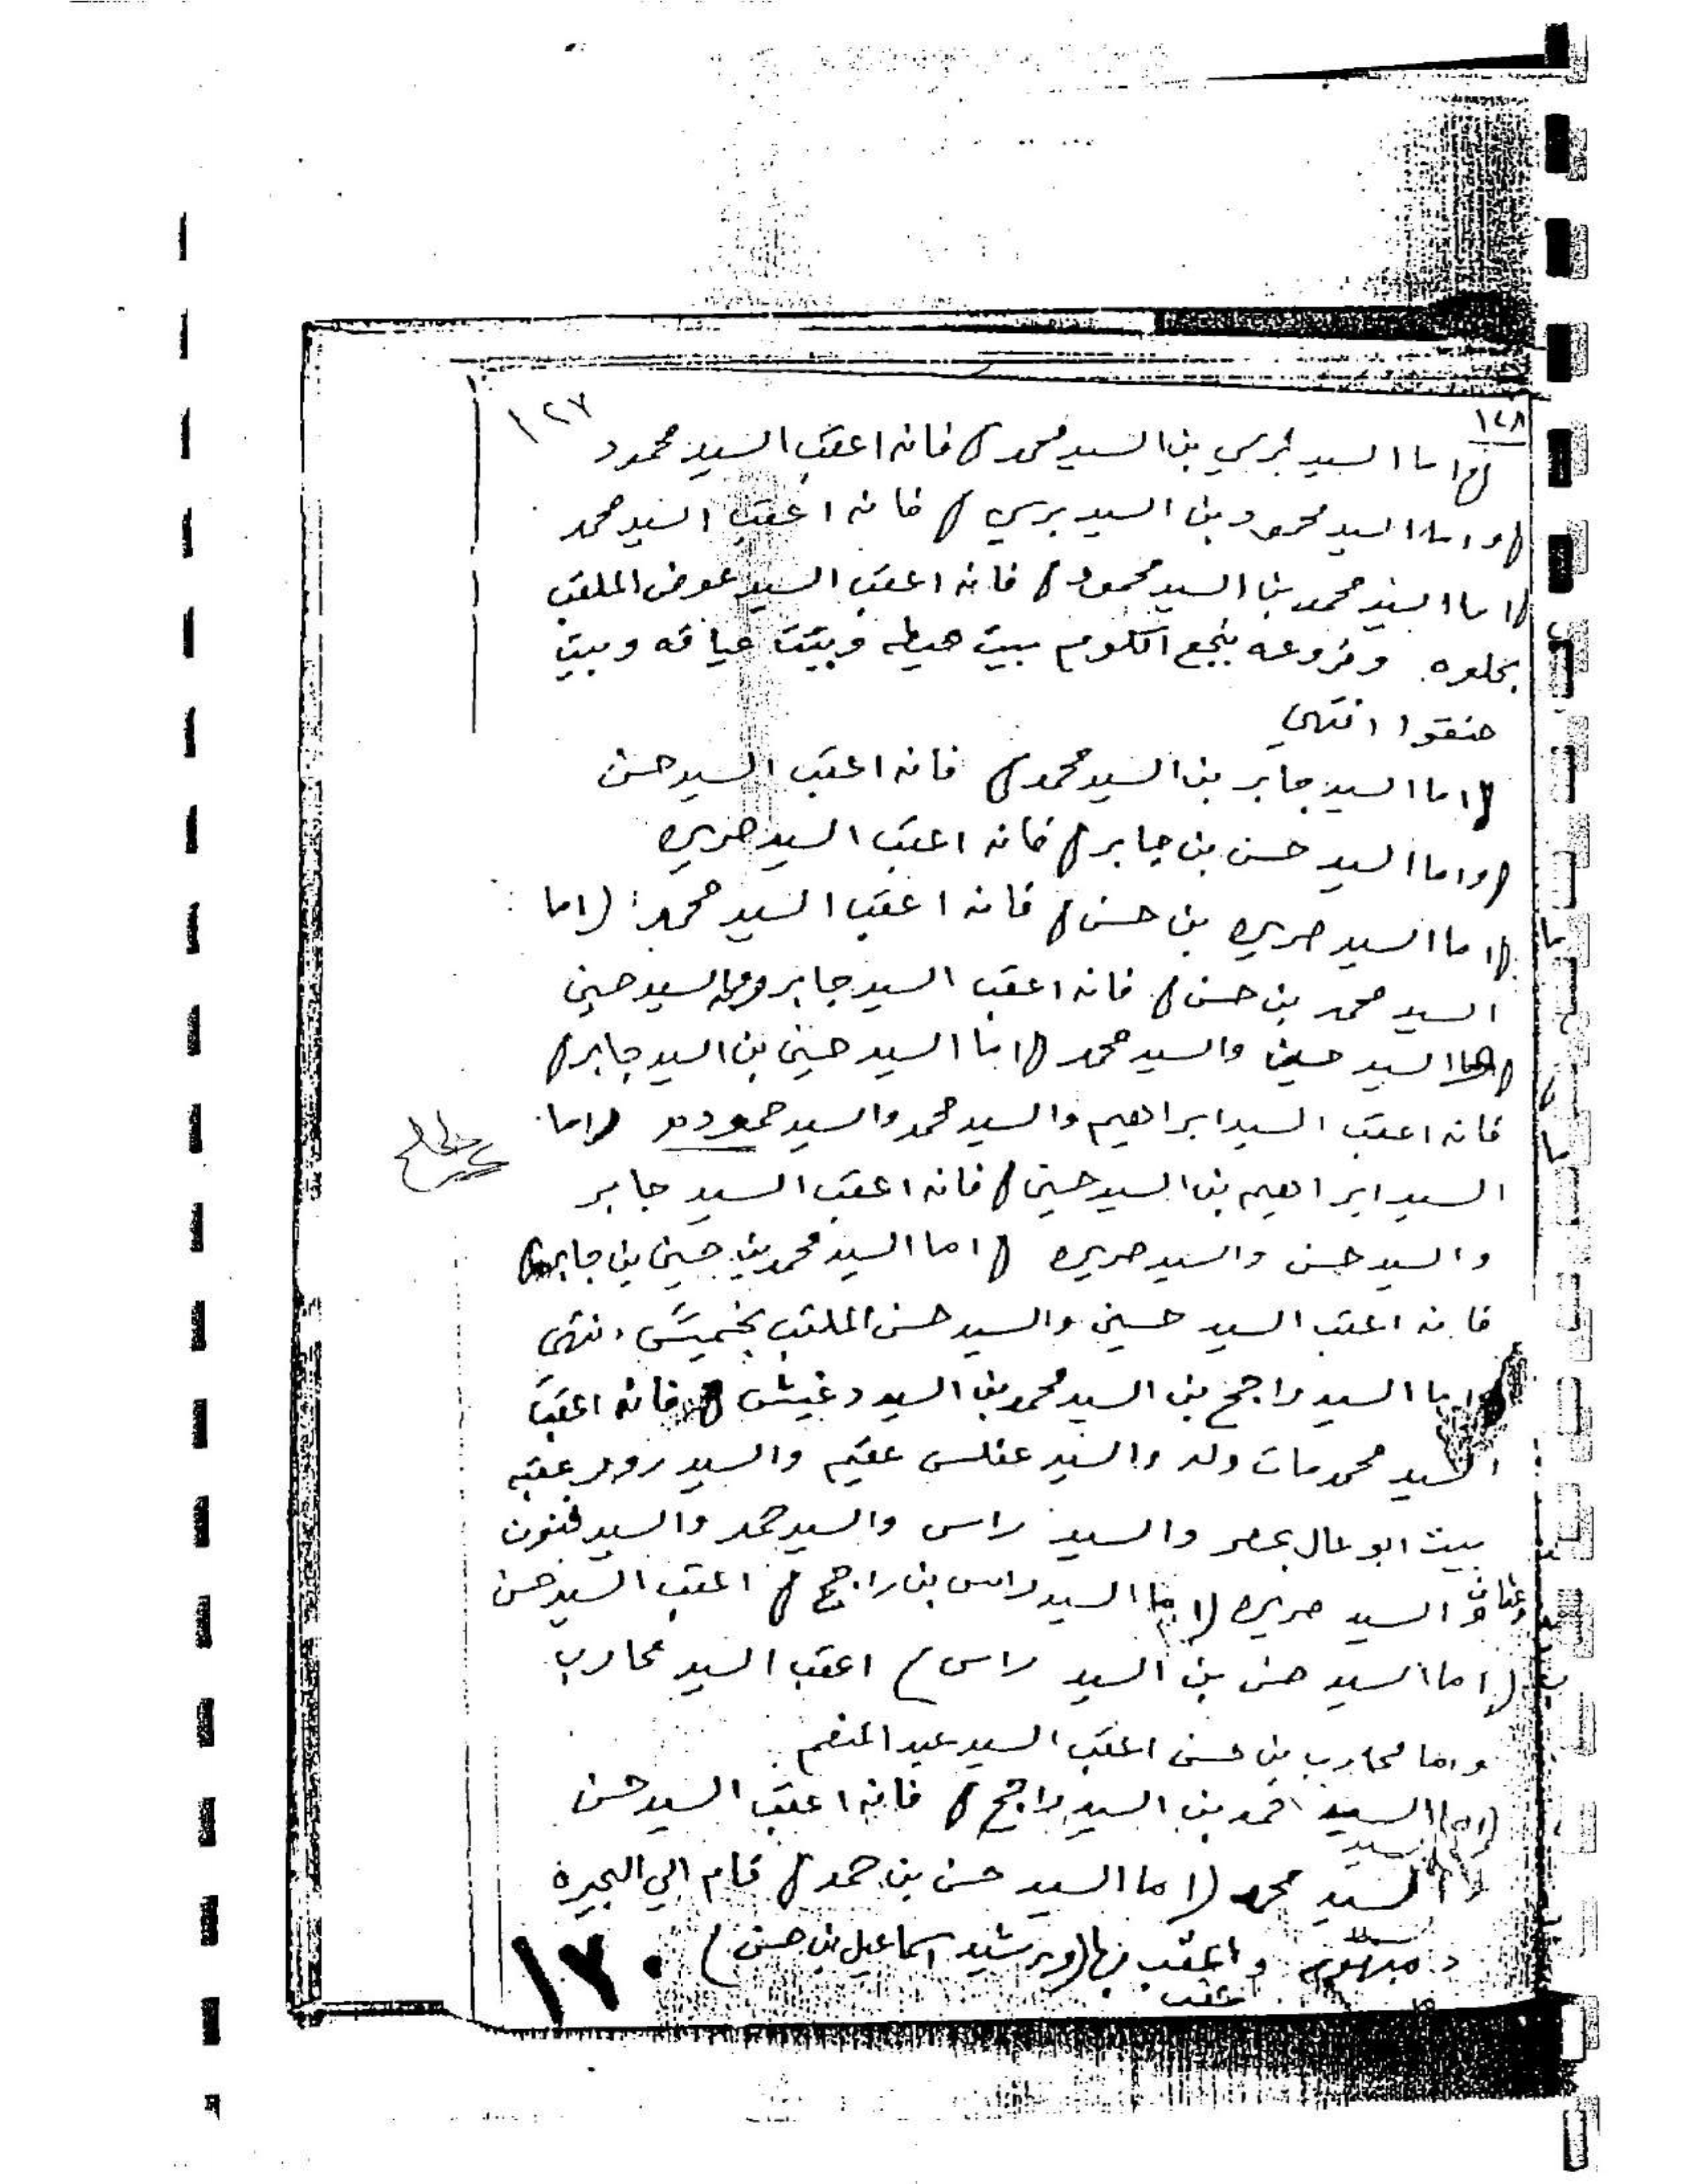 ١٢٨
١٢٧
(اما السيد برسي بن السيد محمد) فانه اعقب السيد محمود
(واما السيد محمود بن السيد برسي) فانه اعقب السيد محمد
(اما السيد محمد بن السيد محمود) فانه اعقب السيد عوض الملقب
بحلوه وفروعه بنجع الكلوم ببيت هيطه وبيت عياقه وبيت
حنقوا انتهى
(اما السيد جابر بن السيد محمد) فانه اعقب السيد حسن
(واما السيد حسن بن جابر) فانه اعقب السيد حريره
(اما السيد حريره بن حسن) فانه اعقب السيد محمد (اما
السيد محمد بن حسن) فانه اعقب السيد جابر السيد حسين
السيد حسين والسيد محمد (اما السيد حسين بن السيد جابر)
فانه اعقب السيد ابراهيم والسيد محمد والسيد حموده (اما
السيد ابراهيم بن السيد حسين) فانه اعقب السيد جابر
والسيد حسن والسيد حريره (اما السيد محمد بن حسين بن جابر)
فانه اعقب السيد حسين والسيد حسن الملقب انتهى
اما السيد راجح بن السيد محمد بن السيد دغيش فانه اعقب
السيد محمد مات ولد والسيد عقلس عقيم والسيد عقبه
بيت ابو عال بمصر والسيد راس والسيد حمد والسيد فنون
والسيد حريره (اما السيد راس بن راجح) اعقب السيد حسن
(اما السيد حسن بن السيد راس) اعقب السيد محارب
واما محارب بن حسن اعقب السيد عبد المنعم
(اما) السيد احمد بن السيد راجح) فانه اعقب السيد حسن
السيد محمد (اما السيد حسن بن حمد) قام الي البحيره
واعقب بها اسماعيل بن حسن)
١٢٠